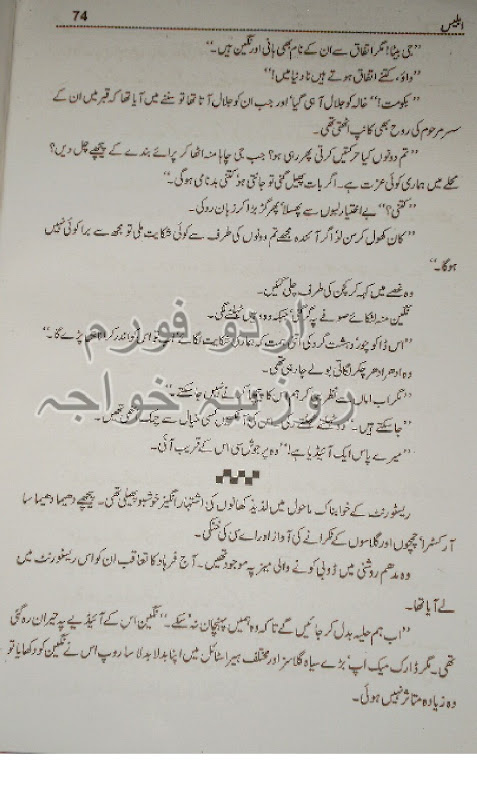 ابلیس 74
’’جی بیٹا! مگر اتفاق سے ان کے نام بھی ہانی اور نگین ہیں۔‘‘
’’واؤ، کتنے اتفاق ہوتے ہیں نا دنیا میں!‘‘
’’بکومت!‘‘ خالہ کو جلال آ ہی گیا‘ اور جب ان کو جلال آتا تھا تو سننے میں آیا تھا کہ قبر میں ان کے
سسر مرحوم کی روح بھی کانپ اٹھتی تھی۔
’’تم دونوں کیا حرکتیں کرتی پھر رہی ہو؟ جب جی چاہا منہ اٹھا کر پرائے بندے کے پیچھے چل دیں؟
محلے میں ہماری کوئی عزت ہے۔ اگر بات پھیل گئی تو جانتی ہو‘ کتنی بدنامی ہوگی۔‘‘
’’کتنی؟‘‘ بے اختیار لبوں سے پھسلا‘ پھر گڑبڑا کر زبان روکی۔
’’کان کھول کر سن لو‘ اگر آئندہ مجھے تم دونوں کی طرف سے کوئی شکایت ملی تو مجھ سے برا کوئی نہیں
ہوگا۔‘‘
وہ غصے میں کہہ کر کچن کی طرف چلی گئیں۔
نگین منہ لٹکائے صوفے پر گر گئی‘ جبکہ وہ وہیں ٹہلنے لگی۔
’’اس ڈاکو چور‘ دہشت گرد کی اتنی ہمت کہ ہماری شکایت لگائے‘ اب تو اس کو اندر کرانا ہی پڑے گا۔‘‘
وہ ادھر ادھر چکر لگاتی بولے جا رہی تھی۔
’’مگر اب اماں نظر رکھیں گی ہم اس کا پیچھا کرنے نہیں جا سکتے۔‘‘
’’جا سکتے ہیں۔‘‘ وہ ٹہلتے ٹہلتے رکی۔ اس کی آنکھیں کسی خیال سے چمک اٹھی تھیں۔
’’میرے پاس ایک آئیڈیا ہے!‘‘ وہ پر جوش سی اس کے قریب آئی۔
ریسٹورنٹ کے خوابناک ماحول میں لذیذ کھانوں کی اشتہا انگیز خوشبو پھیلی تھی۔ پیچھے دھیما دھیما سا
آرکسٹرا‘ چمچوں اور گلاسوں کے ٹکرانے کی آواز اور اے سی کی خنکی۔
وہ مدھم روشنی میں ڈوبی کونے والی میز پہ موجود تھیں۔ آج فرہاد کا تعاقب ان کو اس ریسٹورنٹ میں
لے آیا تھا۔
’’اب ہم حلیہ بدل کر جائیں گے تا کہ وہ ہمیں پہچان نہ سکے۔‘‘ نگین اس کے آئیڈیے پہ حیران رہ گئی
تھی۔ مگر ڈارک میک اپ‘ بڑے سیاہ گلاسز اور مختلف ہیر اسٹائل میں اپنا بدلا بدلا سا روپ اس نے نگین کو دکھایا تو
وہ زیادہ متاثر نہیں ہوئی۔
اردو فورم
روزینہ خواجہ